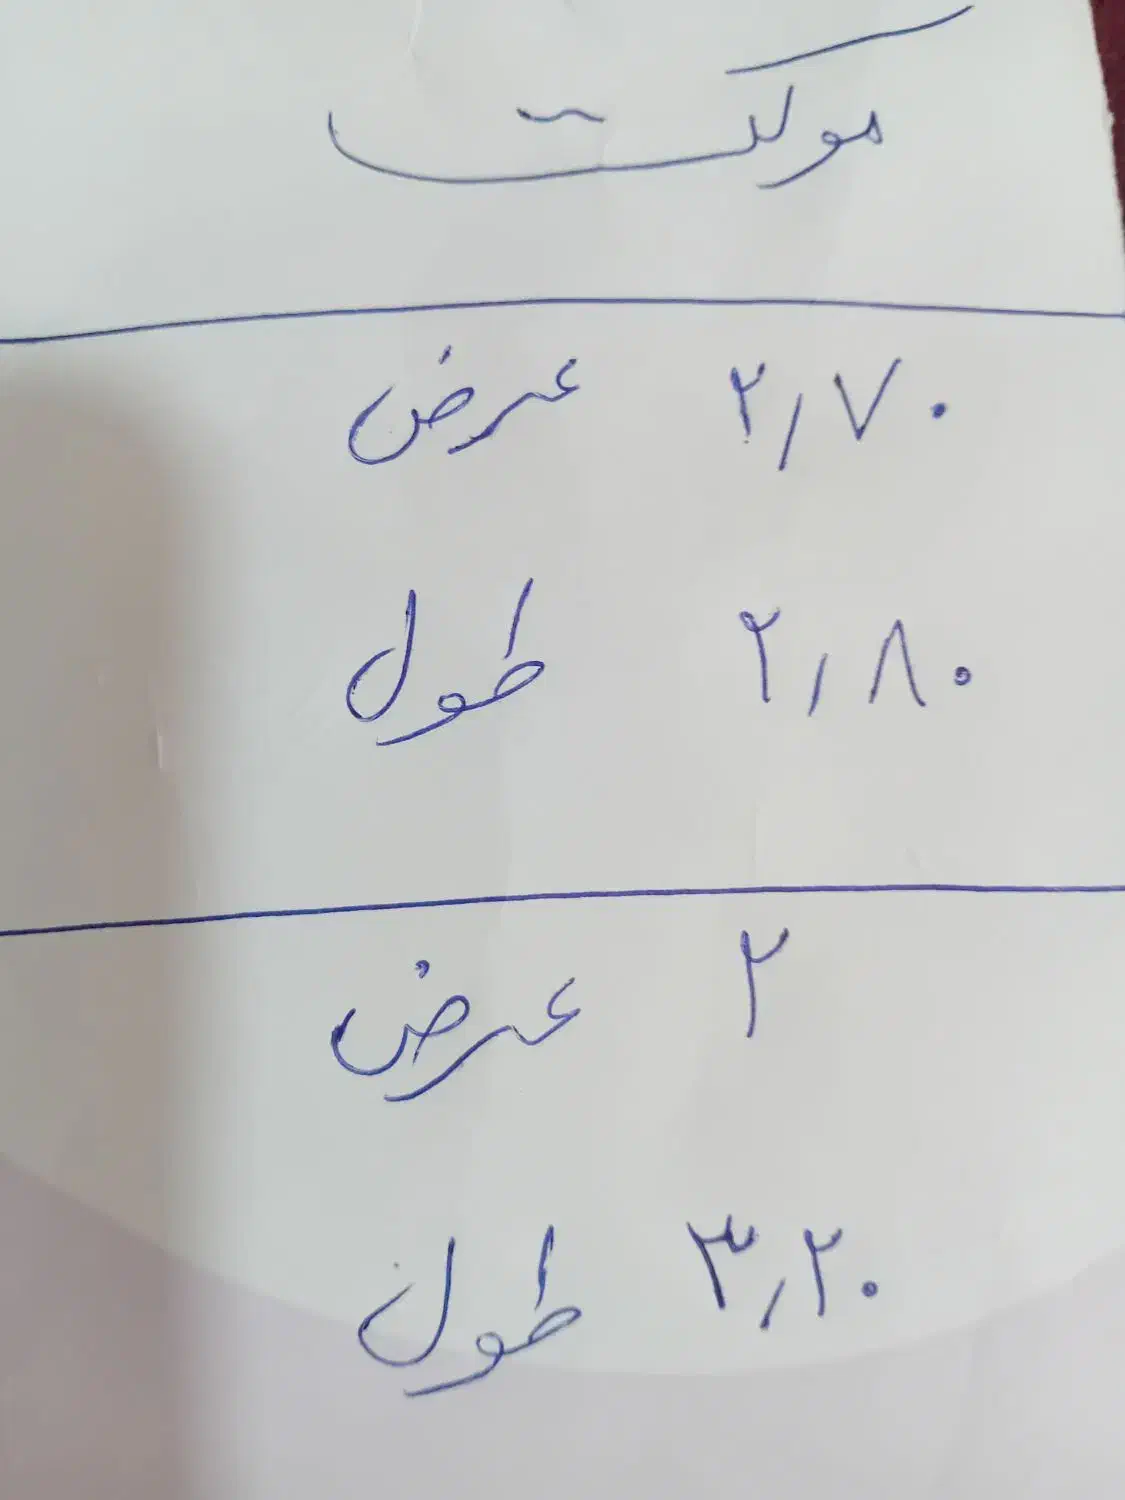 موکت
۲٫۷۰ عرض
۲٫۸۰ طول
۲ عرض
۳٫۲۰ طول